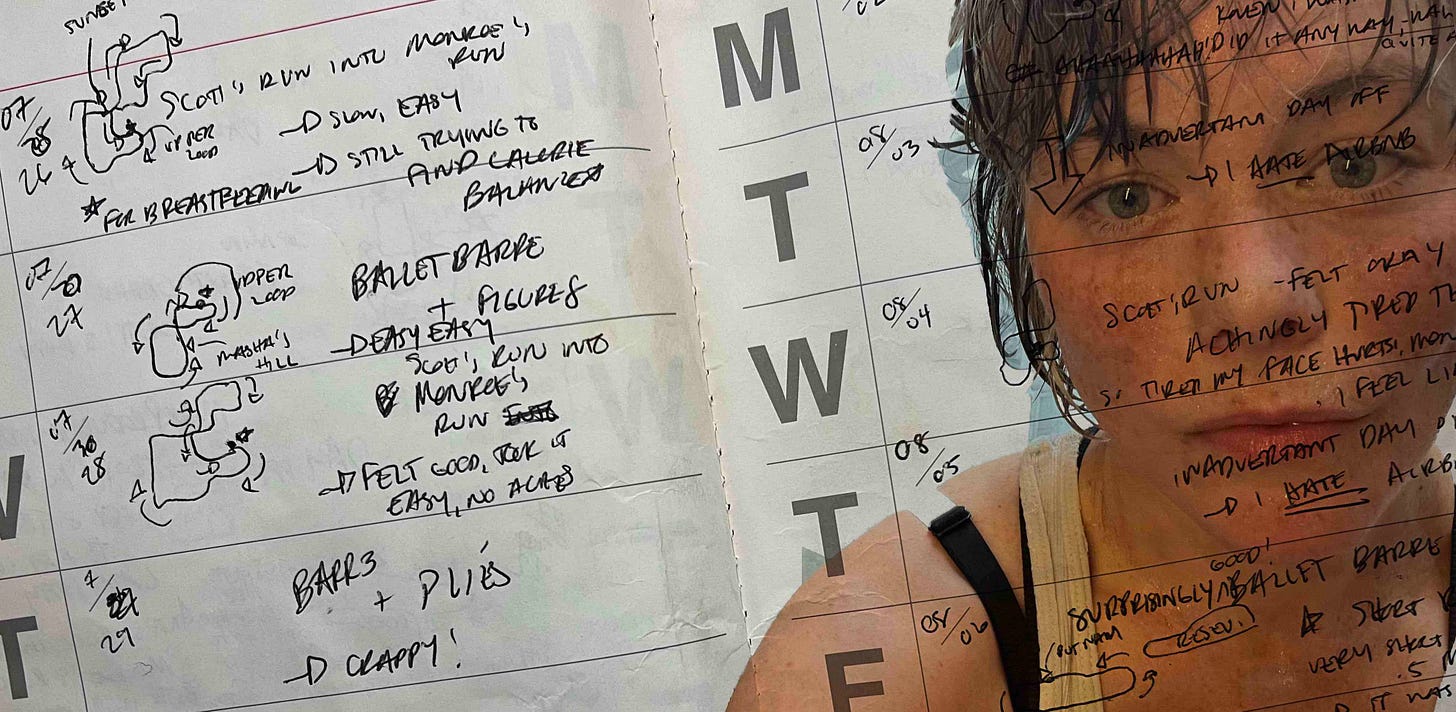 SUNSET
07/
26
SCOTT'S RUN INTO MONROE'S
RUN
UPPER
LOOP
→ SLOW, EASY
→ STILL TRYING TO
FIND CALORIE
BALANCE
☆ FOR BREASTFEEDING
07/
27
UPPER
LOOP
MASHA'S
HILL
BALLET BARRE
+ FIGURES
→ EASY EASY
07/
28
SCOTT'S RUN INTO
MONROE'S
RUN
→ FELT GOOD, TOOK IT
EASY, NO ACHES
T
7/
29
BARR3
+ PLIÉS
→ CRAPPY!
M
KNEW I
DID IT ANYWAY
QUITE
T
08/03
INADVERTANT DAY OFF
→ I HATE AIRBNB
W
08/04
SCOTT'S RUN - FELT OKAY
ACHINGLY TIRED
SO TIRED MY FACE HURTS,
I FEEL
T
08/05
INADVERTANT DAY
→ I HATE
F
08/06
GOOD!
SURPRISINGLY ^ BALLET BARRE
PUTNAM
RESEV.
☆ SHORT
VERY SHORT
.5
IT WAS